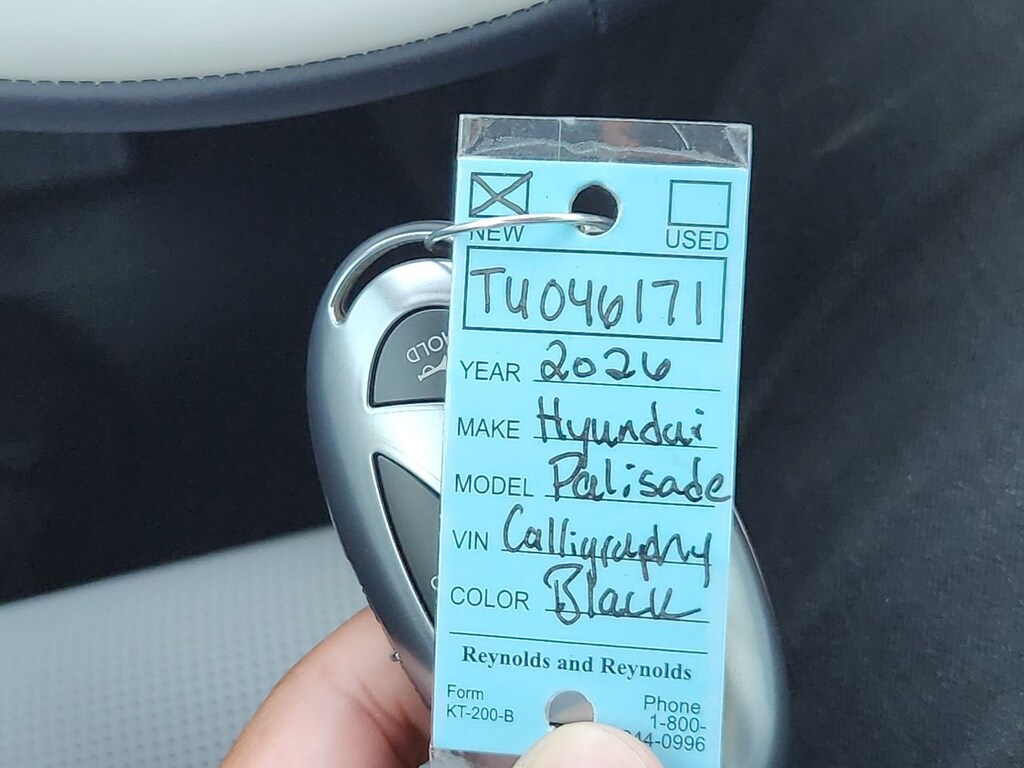 NEW USED
TU046171
YEAR 2026
MAKE Hyundai
MODEL Palisade
VIN Calligraphy
COLOR Black
Reynolds and Reynolds
Form Phone
KT-200-B 1-800-
44-0996
HOLD